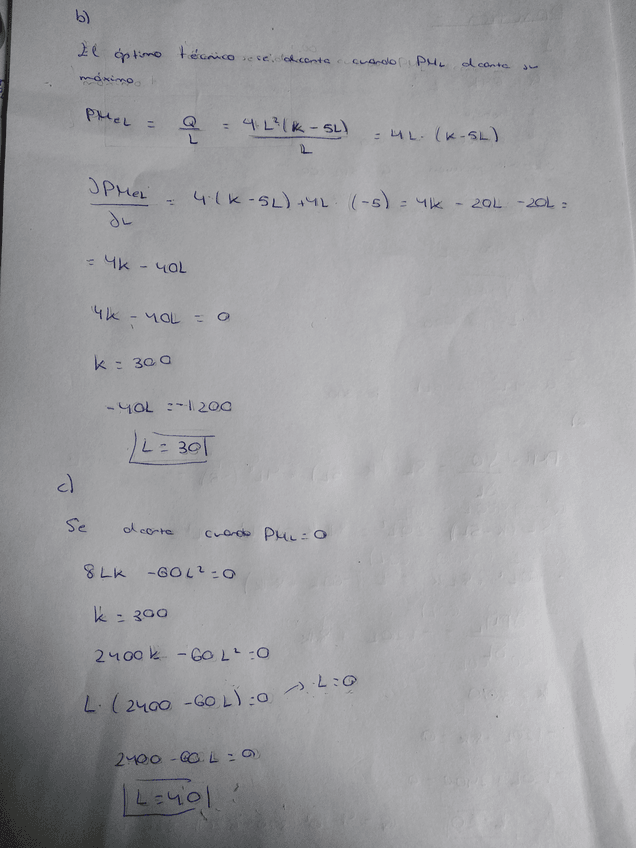 b)
El óptimo técnico se alcanza cuando PMeL alcanza su
máximo.
PMeL = Q/L = 4·L²(K-5L)/L = 4L·(K-5L)
∂PMeL/∂L = 4·(K-5L)+4L·(-5) = 4K - 20L - 20L =
= 4K - 40L
4K - 40L = 0
K = 300
-40L = -1200
L = 30
c)
Se alcanza cuando PML = 0
8LK - 60L² = 0
K = 300
2400K - 60L² = 0
L·(2400 - 60L) = 0 → L = 0
2400 - 60L = 0
L = 40